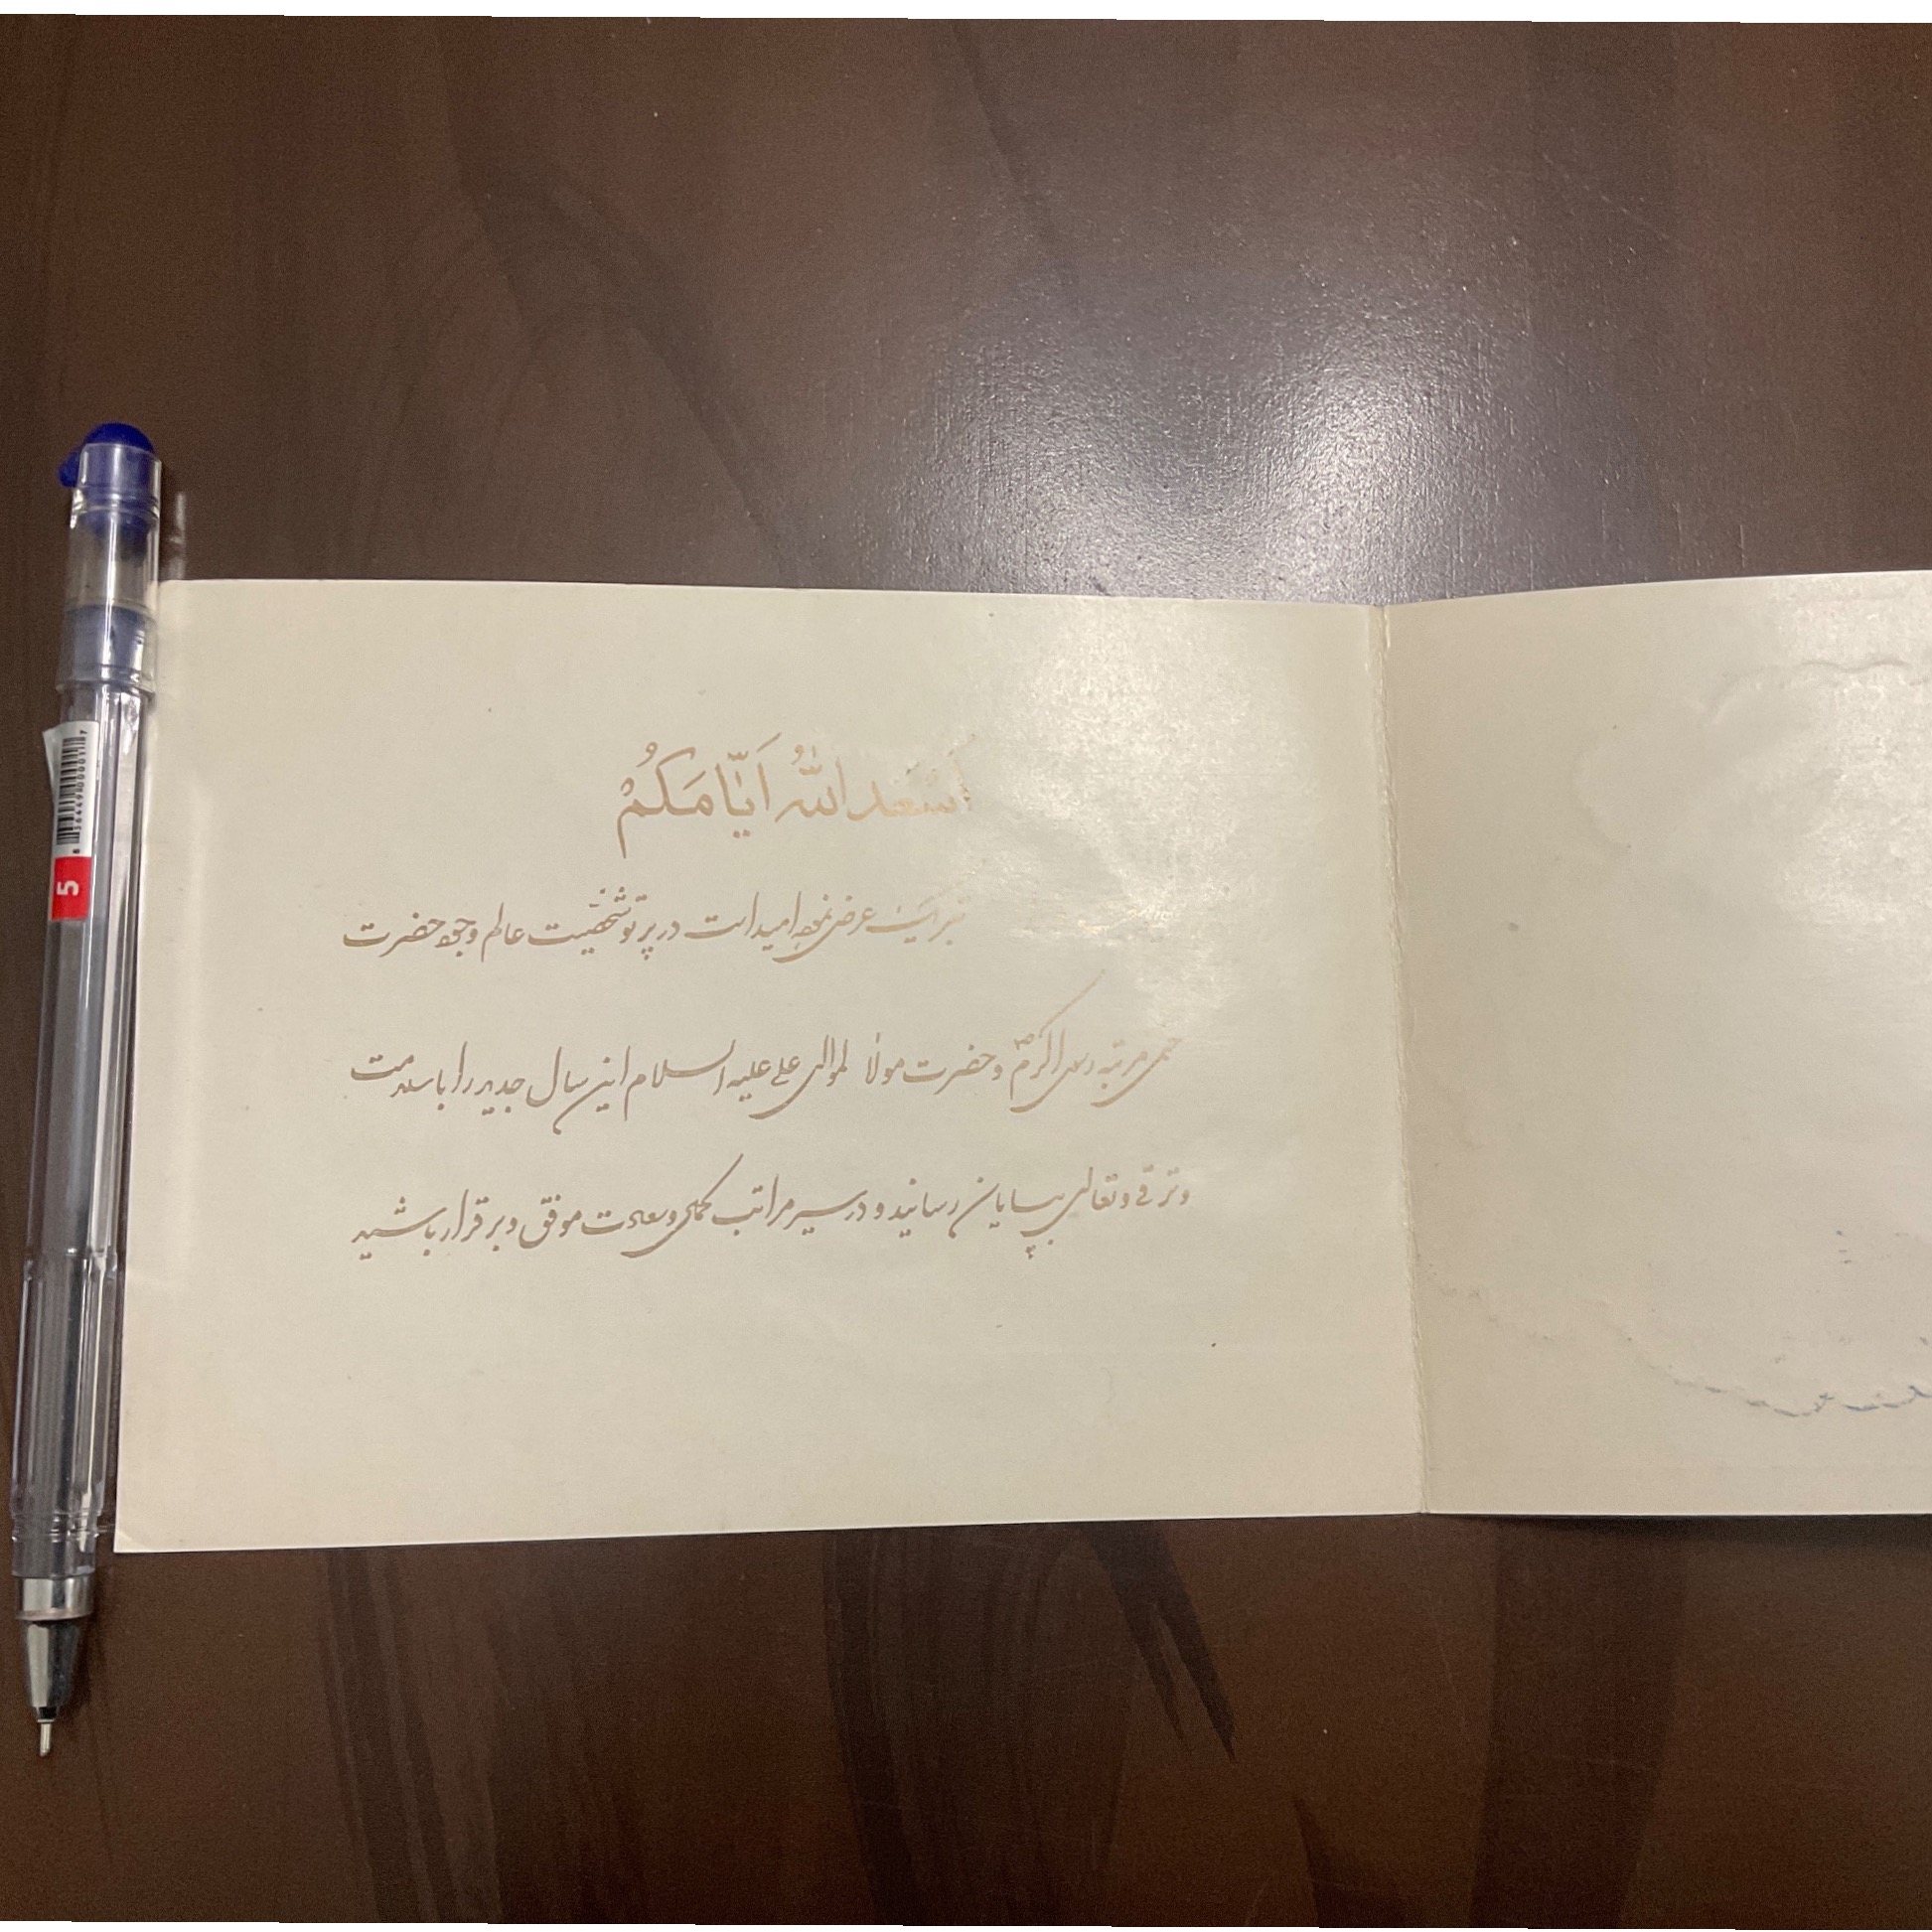 اَسْعَدَ اللّٰهُ اَیّٰامَکُمْ
تبریک عرض نموده امید است در پرتو شخصیت عالم وجود حضرت
ختمی مرتبه رسول اکرم ص و حضرت مولا الموالی علی علیه السلام این سال جدید را با سلامت
و ترقی و تعالی بپایان رسانید و در سیر مراتب کمال و سعادت موفق و برقرار باشید
5